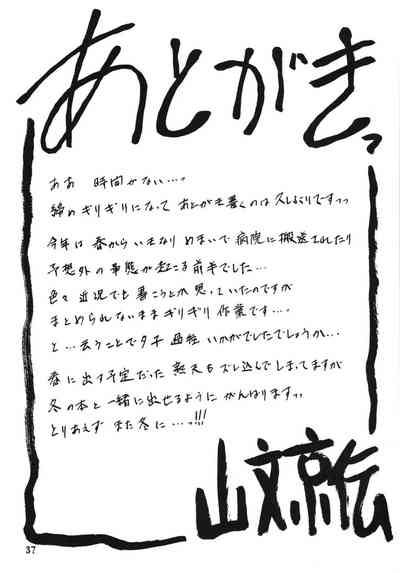 あとがきっ
ああ 時間がない…っ
締めぎりぎりになって あとがき書くのは久しぶりですっっ
今年は 春からいきなり めまいで 病院に搬送されたり
予想外の事態が起こる前半でした…
色々 近況でも 書こうとか 思っていたのですが
まとめられないまま ぎりぎり 作業です…。
と…云うことで
いかがでしたでしょうか…
春に出す予定だった
も ズレ込んでしまってますが
冬の本と 一緒に出せるように がんばりますっっ
とりあえず また冬に…っ!!!
山文京伝
37